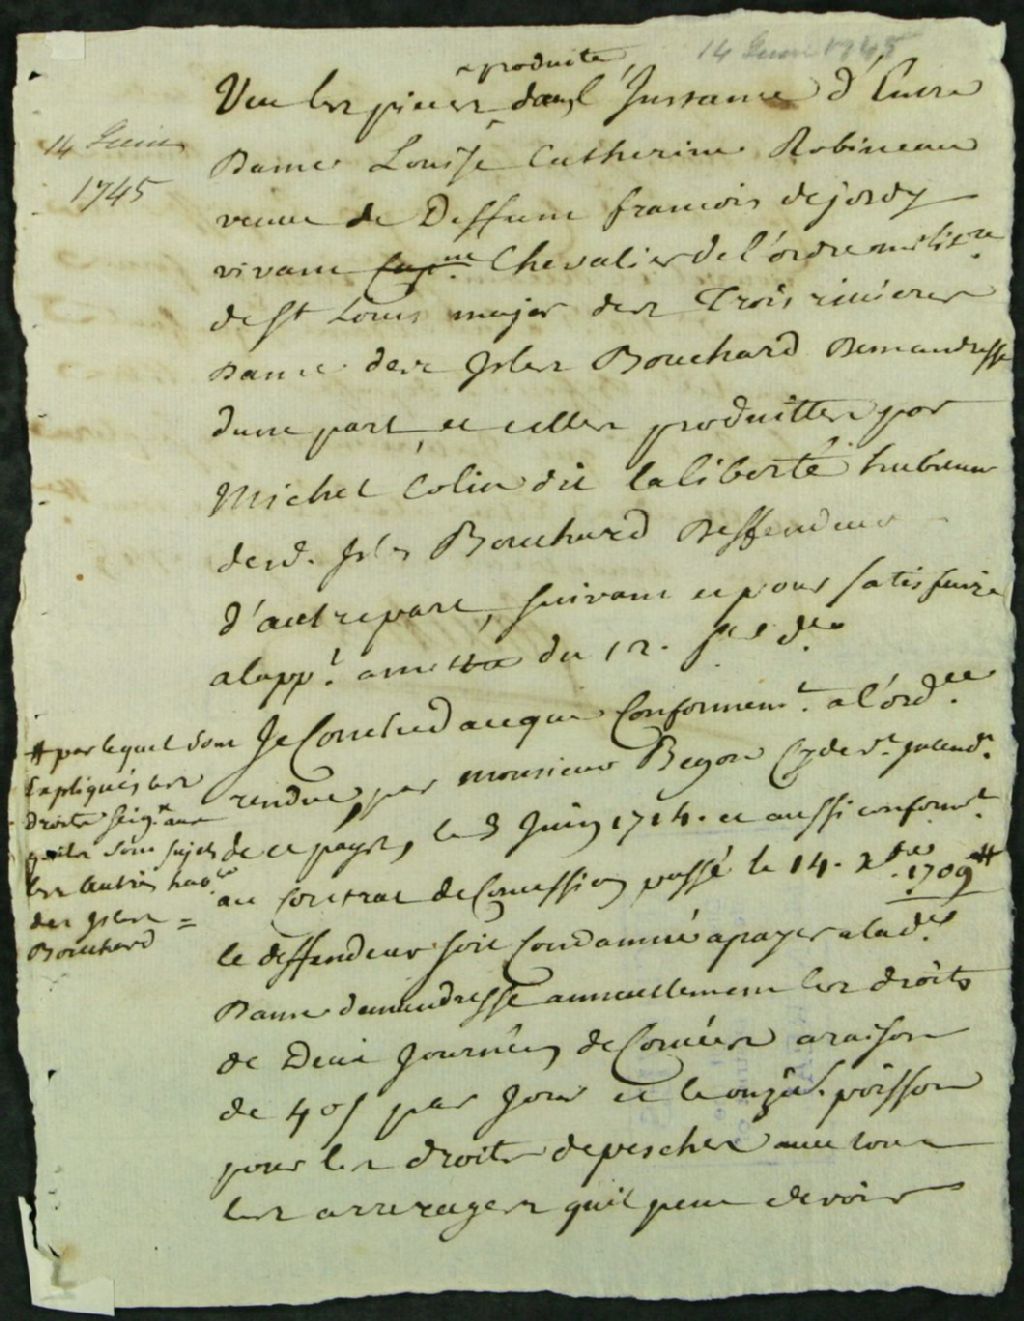 14 Juin 1745
produite
Veu les pieces dans l'Instance d'Entre
14 Juin
1745
Dame Louise Catherine Robineau
veuve de Deffunt francois dejordy
vivant Cap.ne Chevalier de l'ordre milit.re
de St Louis major des Trois rivieres
Dame des Isles Bouchard Demandresse
dune part, et celles produittes par
Michel Colin dit laliberté habitant
desd. Isles Bouchard Deffendeur
d'autre part, suivant et pour satisfaire
alapp.t du 12. d.
Je Conclud acque Conformem.t a l'ord.ce
rendue par monsieur Begon Cy dev.t Intend.t
de ce païs, le 3 Juin 1714. et aussi conform.t
au Contrat de Concession passé le 14. X.bre 1709 #
le deffendeur soit Condamné apayer alad.e
Dame demandresse annuellement les droits
de Deux Journées de Corvées a raison
de 40s par Jour et le onzié. poisson
pour les droits depesche avec tous
les arrerages quil peut devoir
# par lequel sont
Expliqués les
droits seig.x aux
quils sont sujets
les autres hab.ts
des Isles =
Bouchard